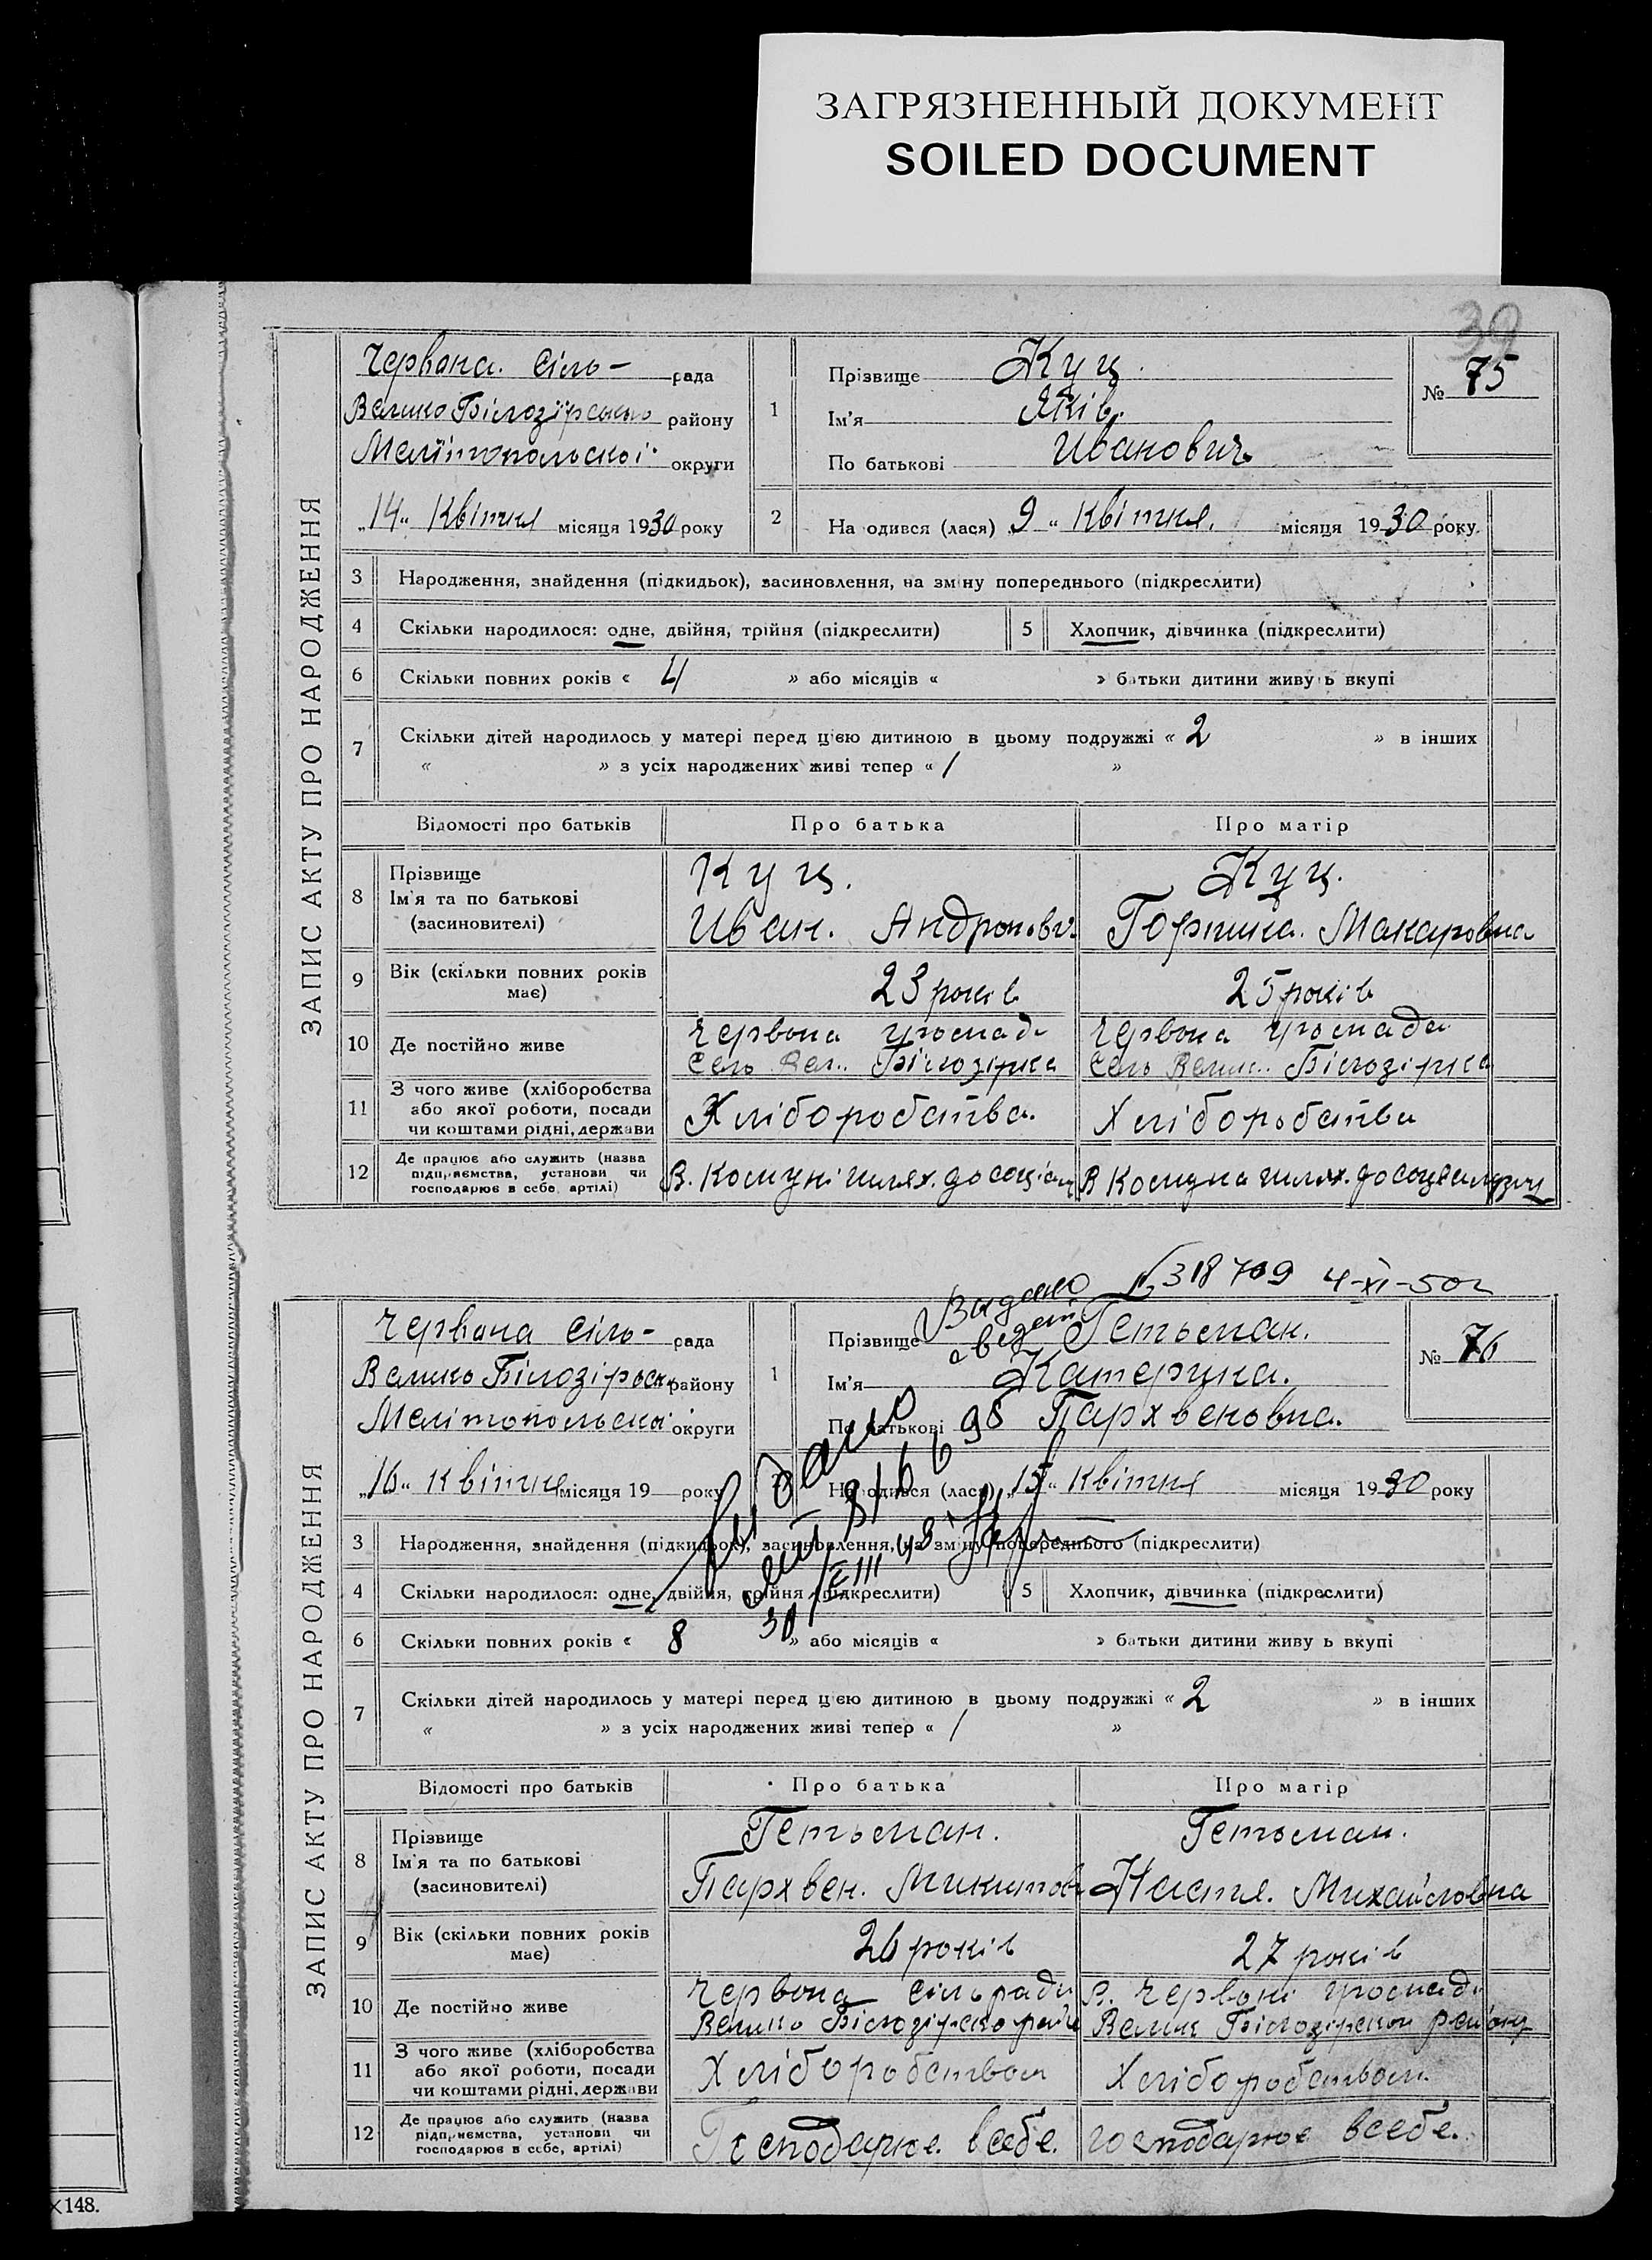 ЗАГРЯЗНЕННЫЙ ДОКУМЕНТ
SOILED DOCUMENT
39
ЗАПИС АКТУ ПРО НАРОДЖЕННЯ
Червона. Сіль- рада
Велико Білозірсько району
Мелітопольскоі округи
„14" Квітня місяця 1930 року
1
Прізвище Куц.
Ім'я Яків.
По батькові Иванович
№ 75
2 На одився (лася) 9 " Квітня. місяця 1930 року.
3 Народження, знайдення (підкидьок), засиновлення, на зміну попереднього (підкреслити)
4 Скільки народилося: одне, двійня, трійня (підкреслити) 5 Хлопчик, дівчинка (підкреслити)
6 Скільки повних років « 4 » або місяців « » батьки дитини живуть вкупі
7 Скільки дітей народилось у матері перед цією дитиною в цьому подружжі « 2 » в інших
« » з усіх народжених живі тепер « 1 »
Відомості про батьків Про батька Про матір
8 Прізвище
Ім'я та по батькові
(засновителі)
Куц.
Иван. Андронови
Куц.
Горпина. Макаровна
9 Вік (скільки повних років
має)
23 років
25 років
10 Де постійно живе
Червона громада
Село Вел.. Білозірка
Червона громада
Село Велик.. Білозірка
11 З чого живе (хліборобства
або якої роботи, посади
чи коштами рідні, держави
Хліборобства.
Хліборобства
12 Де працює або служить (назва
підприємства, установи чи
господарює в себе, артілі)
В. Комуні шлях. до соціа
В Комуна шлях. до
Выдано № 318709 4-XI-50г
свідет
ЗАПИС АКТУ ПРО НАРОДЖЕННЯ
Червона Сіль- рада
Велико Білозірськ району
Мелітопольскоі округи
„16" квітня місяця 19 року
1
Прізвище Гетьман.
Ім'я Катерина.
По батькові Пархвеновна.
№ 76
На одився (лася) „15" квітня місяця 1930 року
3 Народження, знайдення (підкидьок), засиновлення, на зміну попереднього (підкреслити)
4 Скільки народилося: одне, двійня, трійня (підкреслити) 5 Хлопчик, дівчинка (підкреслити)
6 Скільки повних років « 8 » або місяців « » батьки дитини живу ь вкупі
7 Скільки дітей народилось у матері перед цією дитиною в цьому подружжі « 2 » в інших
« » з усіх народжених живі тепер « 1 »
Відомості про батьків Про батька Про матір
8 Прізвище
Ім'я та по батькові
(засиновителі)
Гетьман.
Пархвен. Микитов
Гетьман.
Настя. Михайловна
9 Вік (скільки повних років
має)
26 років
27 років
10 Де постійно живе
Червона сільради
Велико Білозірско
В. Червоні громади
Велик Білозірскои району
11 З чого живе (хліборобства
або якої роботи, посади
чи коштами рідні, держави
Хліборобством
Хліборобством.
12 Де працює або служить (назва
підприємства, установи чи
господарює в себе, артілі)
Господарює. всебе.
господарює всебе.
148.